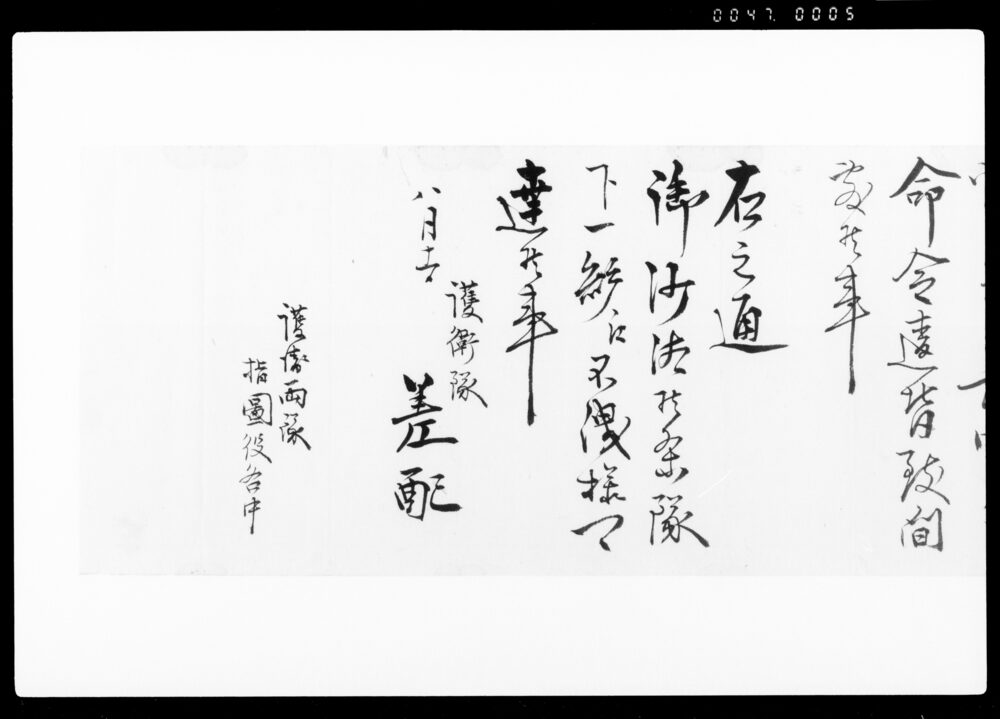 0047.0005
命令違背致間
敷候事
右之通
御沙汰候条隊
下一統江不洩様可
達候事
八月
護衛隊
差配
護衛両隊
指圖役各中